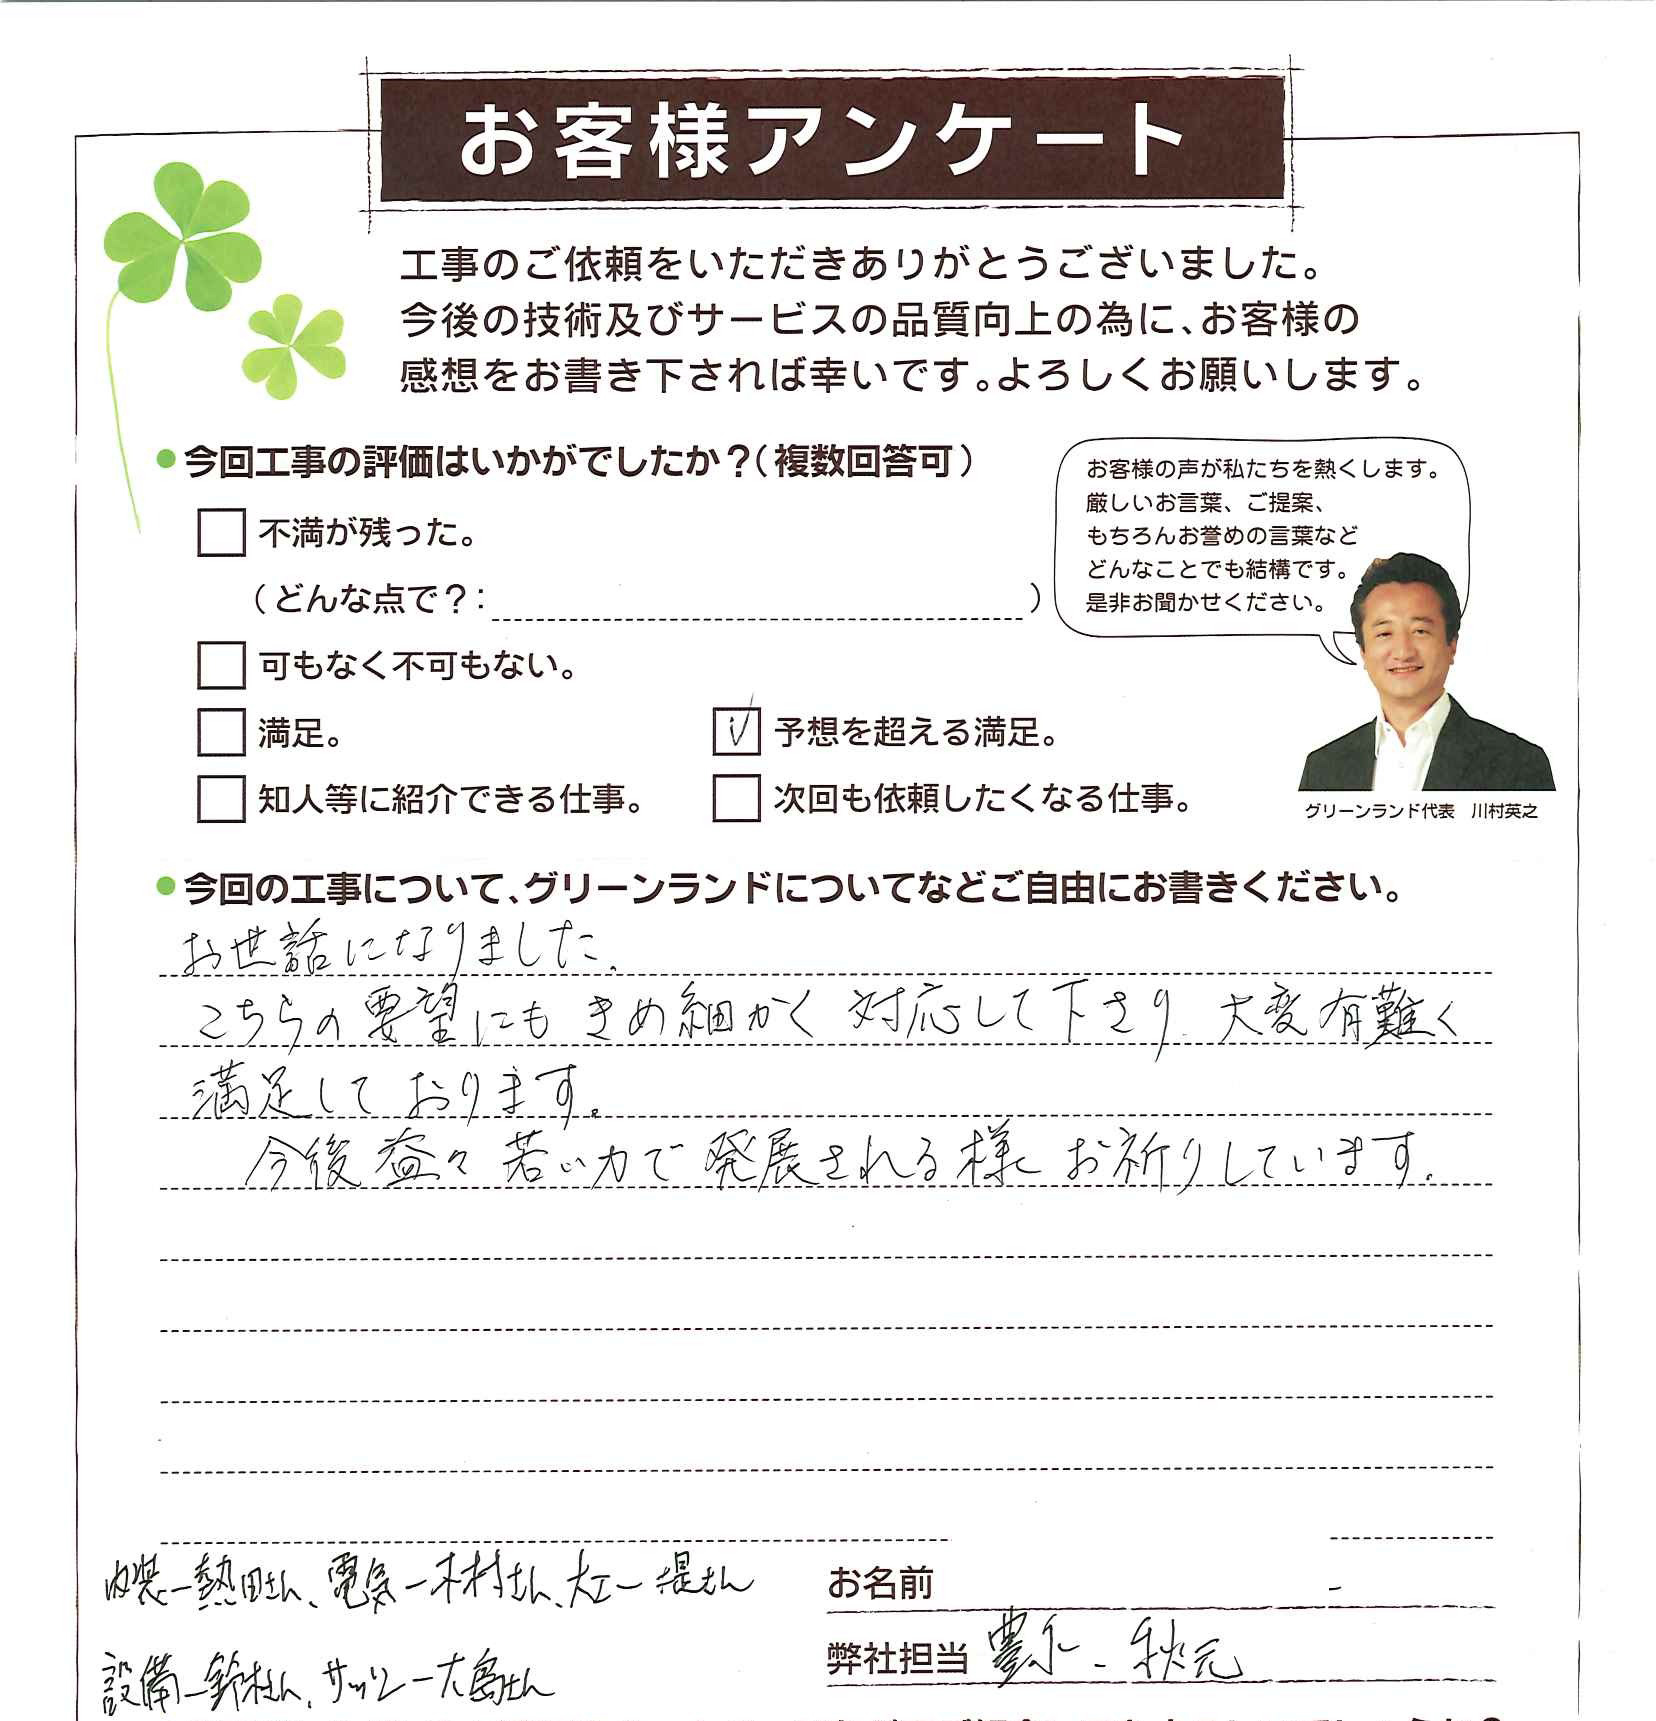 お客様アンケート
工事のご依頼をいただきありがとうございました。
今後の技術及びサービスの品質向上の為に、お客様の
感想をお書き下されば幸いです。よろしくお願いします。
●今回工事の評価はいかがでしたか？（複数回答可）
不満が残った。
（どんな点で？：　　　）
可もなく不可もない。
満足。
予想を超える満足。
知人等に紹介できる仕事。
次回も依頼したくなる仕事。
お客様の声が私たちを熱くします。
厳しいお言葉、ご提案、
もちろんお誉めの言葉など
どんなことでも結構です。
是非お聞かせください。
グリーンランド代表　川村英之
●今回の工事について、グリーンランドについてなどご自由にお書きください。
お世話になりました。
こちらの要望にもきめ細かく対応して下さり、大変有難く
満足しております。
今後益々若い力で発展される様にお祈りしています。
内装ー熱田さん、電気ー木村さん、大工ー堤さん
設備ー鈴木さん、サッシー大島さん
お名前
弊社担当 豊永 - 秋元